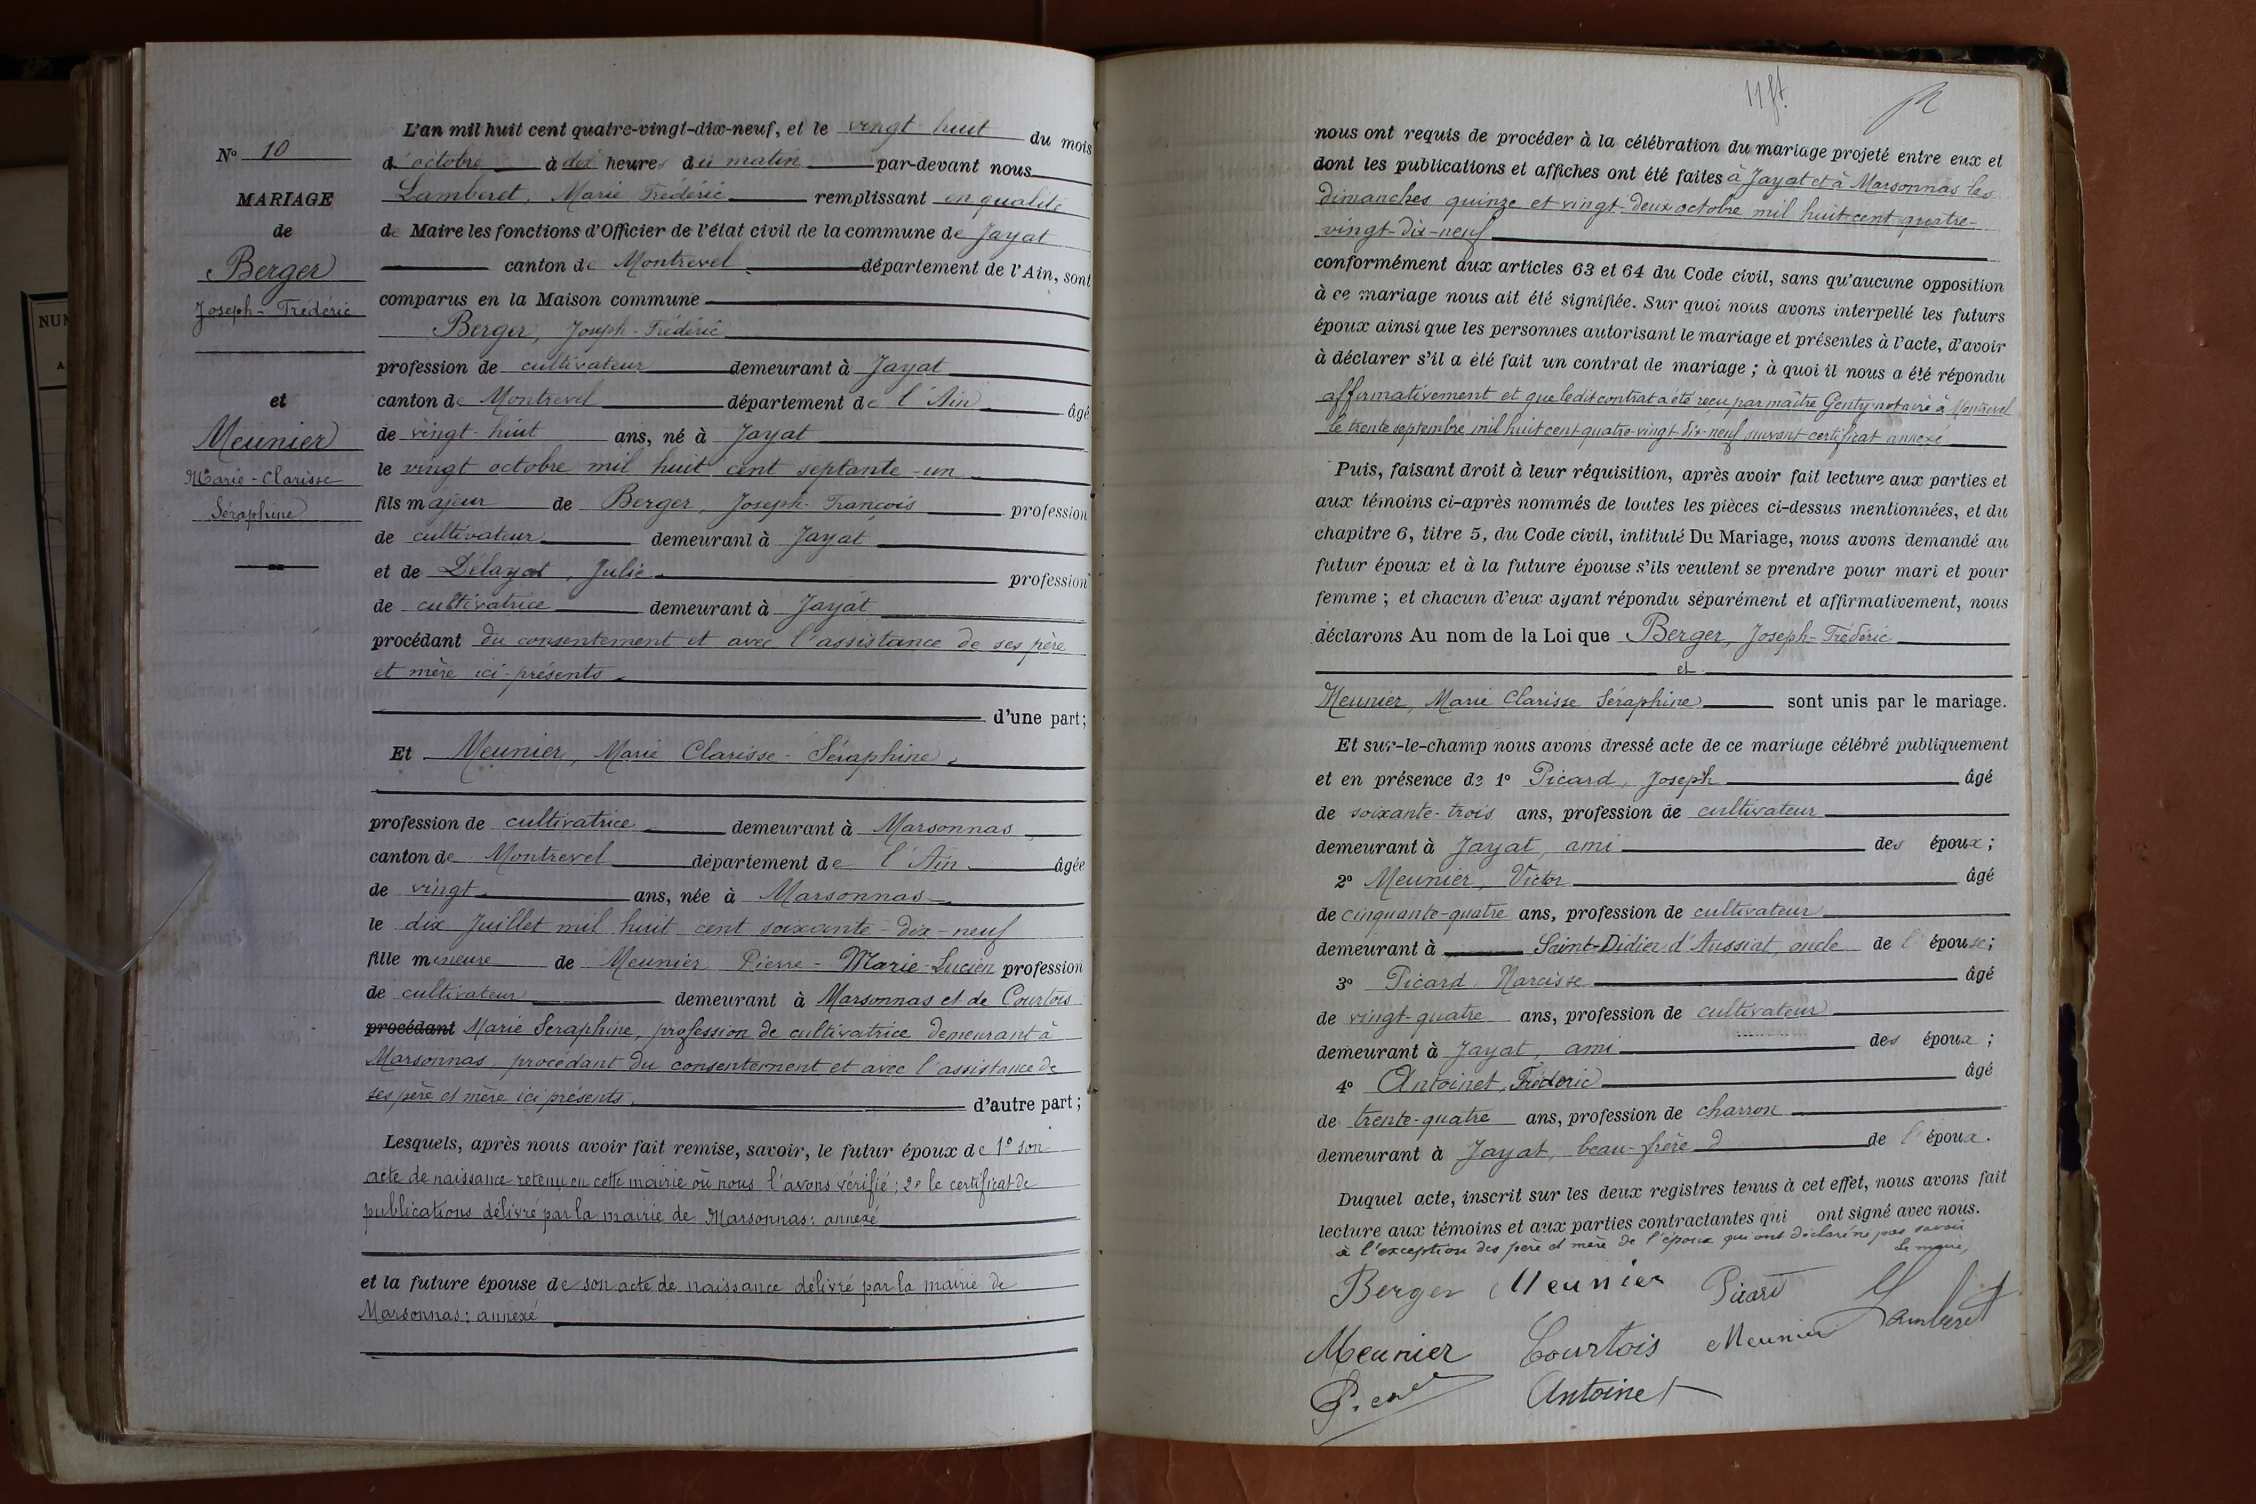 N° 10
MARIAGE
de
Berger
Joseph-Frédéric
et
Meunier
Marie-Clarisse
Séraphine
L'an mil huit cent quatre-vingt-dix-neuf, et le vingt huit du mois
d'octobre à dix heures du matin par-devant nous
Lamberet, Marie Frédéric remplissant en qualité
de Maire les fonctions d'Officier de l'état civil de la commune de Jayat
canton de Montrevel département de l'Ain, sont
comparus en la Maison commune
Berger, Joseph-Frédéric
profession de cultivateur demeurant à Jayat
canton de Montrevel département de l'Ain âgé
de vingt-huit ans, né à Jayat
le vingt octobre mil huit cent septante-un
fils majeur de Berger, Joseph-François profession
de cultivateur demeurant à Jayat
et de Délayat, Julie profession
de cultivatrice demeurant à Jayat
procédant du consentement et avec l'assistance de ses père
et mère ici-présents
d'une part;
Et Meunier, Marie Clarisse-Séraphine
profession de cultivatrice demeurant à Marsonnas
canton de Montrevel département de l'Ain âgée
de vingt ans, née à Marsonnas
le dix Juillet mil huit cent soixante-dix-neuf
fille mineure de Meunier Pierre-Marie-Lucien profession
de cultivateur demeurant à Marsonnas et de Courtois
procédant Marie Seraphine, profession de cultivatrice demeurant à
Marsonnas, procédant du consentement et avec l'assistance de
ses père et mère ici présents. d'autre part;
Lesquels, après nous avoir fait remise, savoir, le futur époux de 1° son
acte de naissance retenu en cette mairie où nous l'avons vérifié; 2° le certificat de
publications délivré par la mairie de Marsonnas: annexé
et la future épouse de son acte de naissance délivré par la mairie de
Marsonnas: annexé
11 ft.
nous ont requis de procéder à la célébration du mariage projeté entre eux et
dont les publications et affiches ont été faites à Jayat et à Marsonnas les
dimanches quinze et vingt-deux octobre mil huit cent quatre-
vingt-dix-neuf
conformément aux articles 63 et 64 du Code civil, sans qu'aucune opposition
à ce mariage nous ait été signifiée. Sur quoi nous avons interpellé les futurs
époux ainsi que les personnes autorisant le mariage et présentes à l'acte, d'avoir
à déclarer s'il a été fait un contrat de mariage; à quoi il nous a été répondu
affirmativement et que ledit contrat a été reçu par maître Genty notaire à Montrevel
le trente septembre mil huit cent quatre-vingt-dix-neuf suivant certificat annexé
Puis, faisant droit à leur réquisition, après avoir fait lecture aux parties et
aux témoins ci-après nommés de toutes les pièces ci-dessus mentionnées, et du
chapitre 6, titre 5, du Code civil, intitulé Du Mariage, nous avons demandé au
futur époux et à la future épouse s'ils veulent se prendre pour mari et pour
femme; et chacun d'eux ayant répondu séparément et affirmativement, nous
déclarons Au nom de la Loi que Berger, Joseph-Frédéric
et
Meunier, Marie Clarisse Séraphine sont unis par le mariage.
Et sur-le-champ nous avons dressé acte de ce mariage célébré publiquement
et en présence de 1° Picard, Joseph âgé
de soixante-trois ans, profession de cultivateur
demeurant à Jayat, ami des époux;
2° Meunier, Victor âgé
de cinquante-quatre ans, profession de cultivateur
demeurant à Saint-Didier d'Aussiat, oncle de l'épouse;
3° Picard Narcisse âgé
de vingt-quatre ans, profession de cultivateur
demeurant à Jayat, ami des époux;
4° Antoinet, Fréderic âgé
de trente-quatre ans, profession de charron
demeurant à Jayat, beau-frère de l'époux.
Duquel acte, inscrit sur les deux registres tenus à cet effet, nous avons fait
lecture aux témoins et aux parties contractantes qui ont signé avec nous.
à l'exception des père et mère de l'époux qui ont déclaré ne pas savoir
Le maire,
Berger Meunier Picard Lamberet
Meunier Courtois Meunier
Picard Antoinet